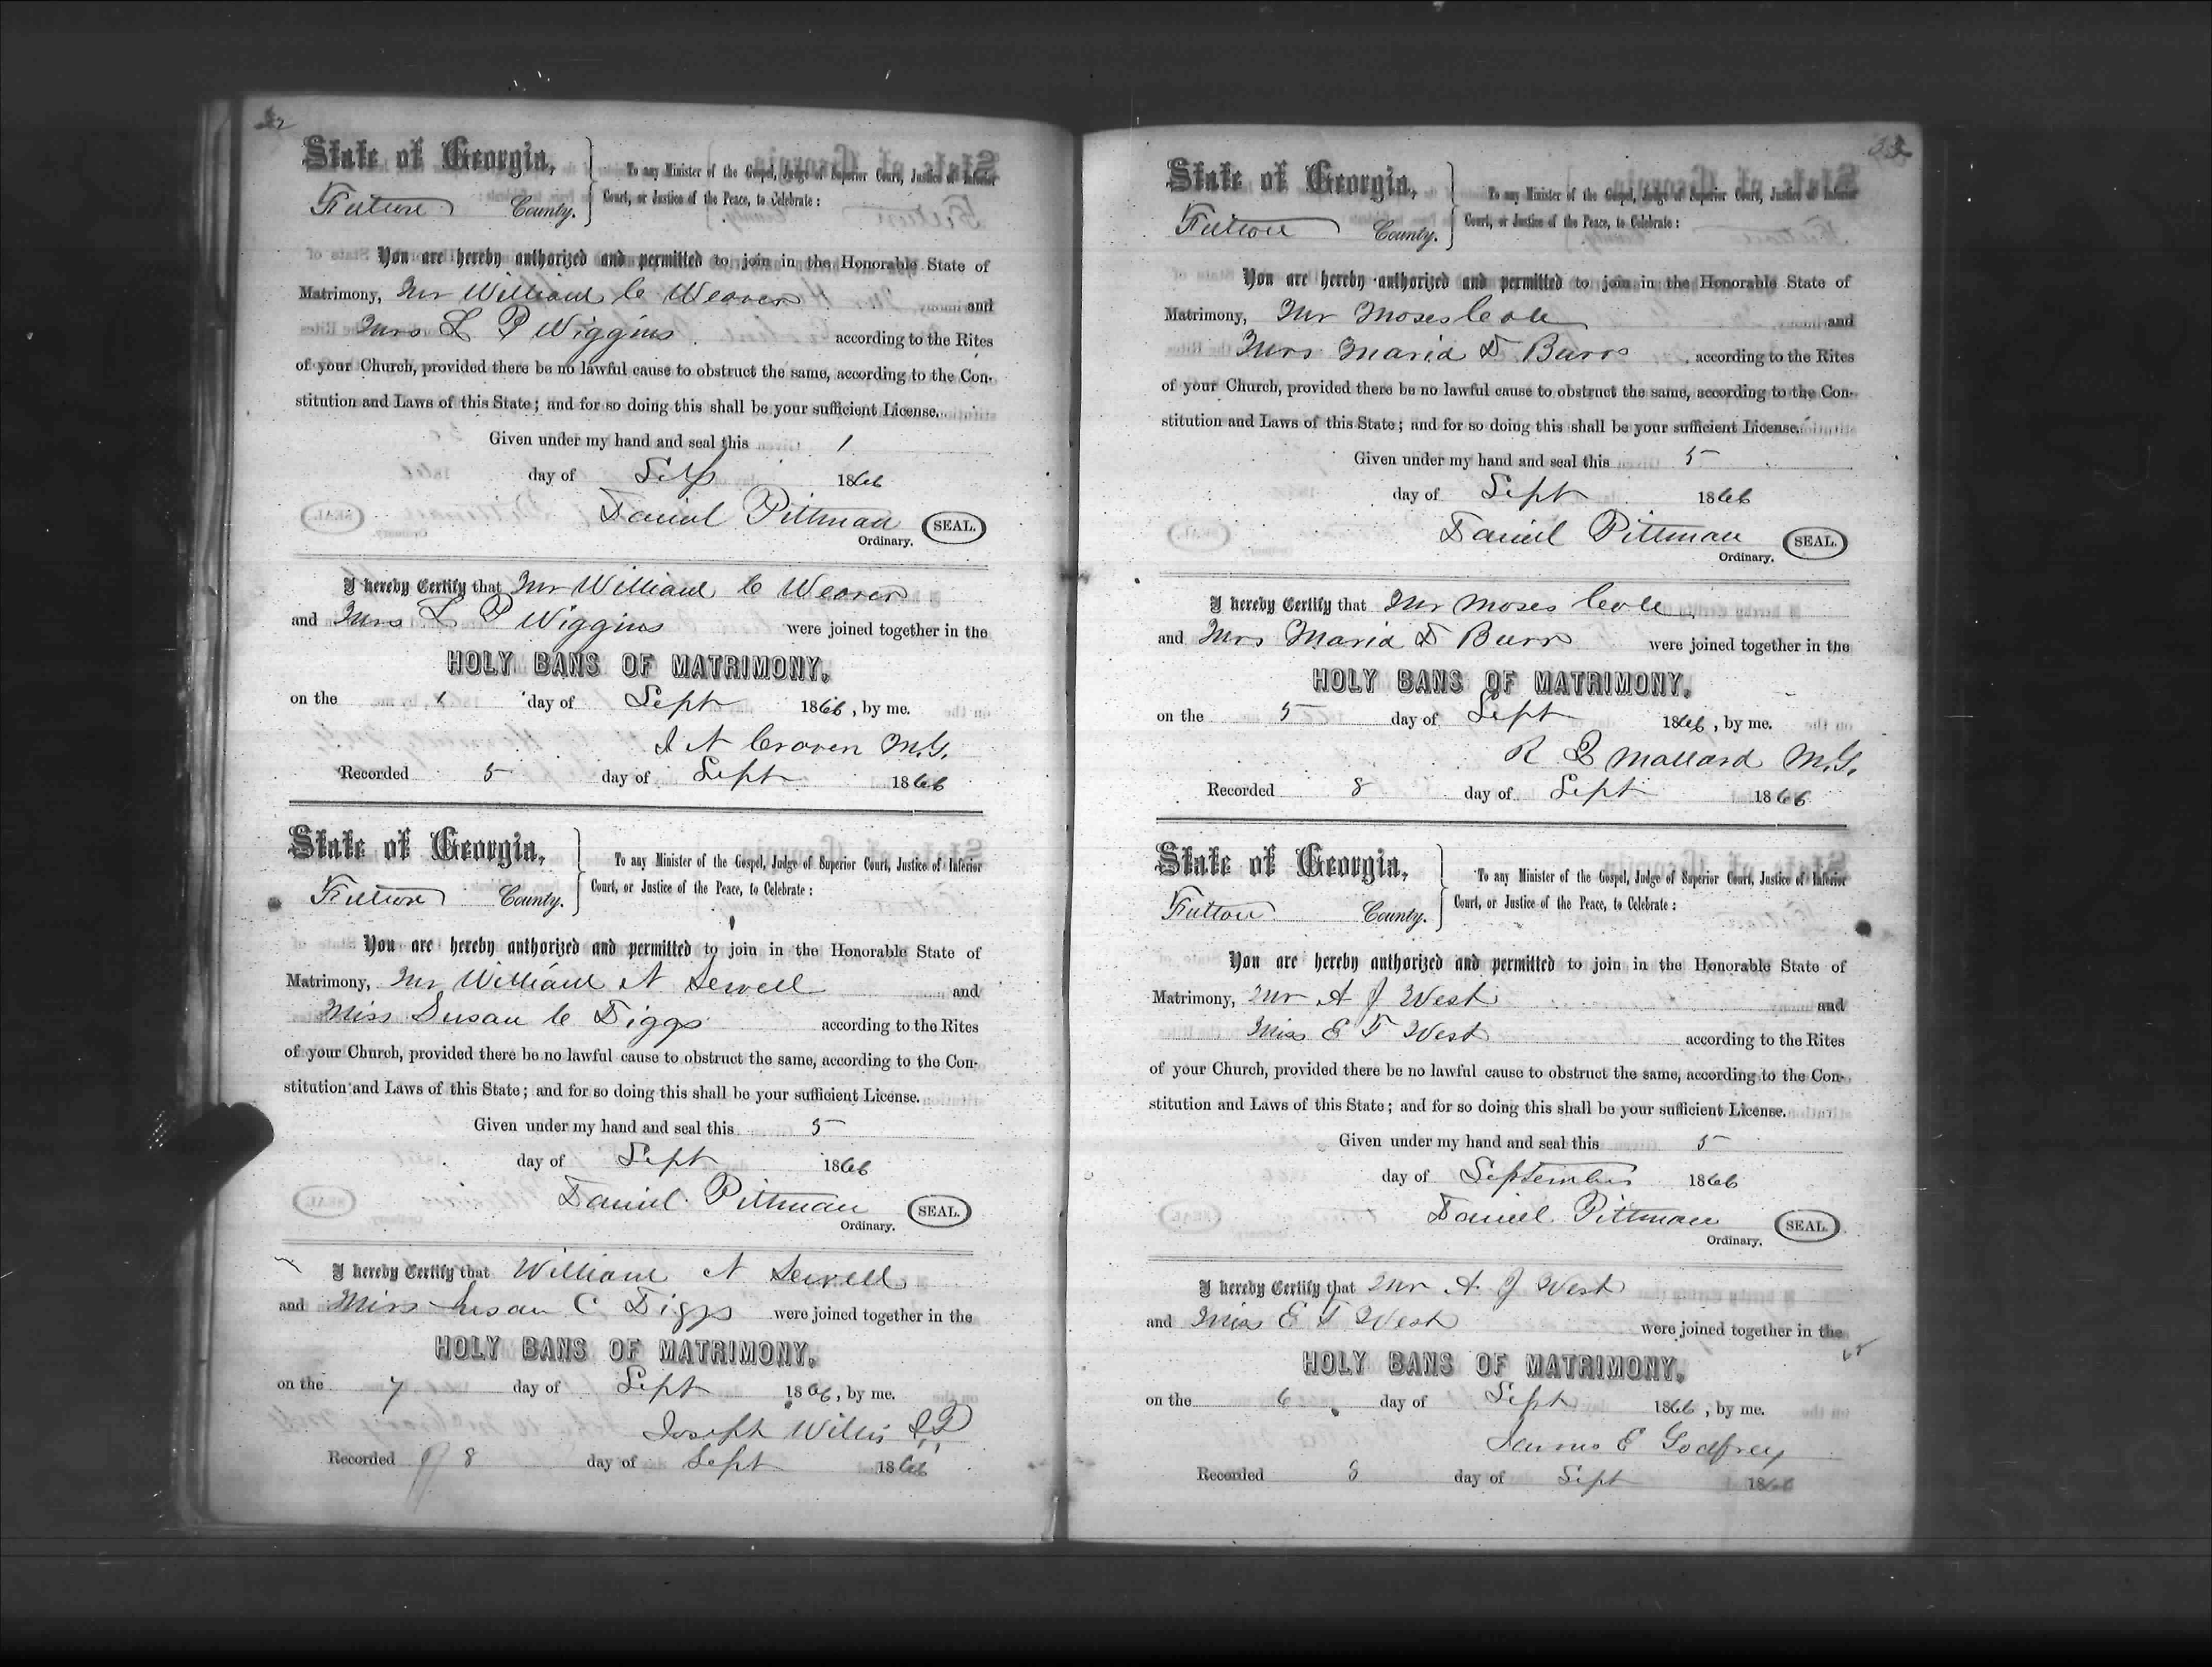 32
State of Georgia,
Fulton County.
To any Minister of the Gospel, Judge of Superior Court, Justice of Inferior
Court, or Justice of the Peace, to Celebrate :
You are hereby authorized and permitted to join in the Honorable State of
Matrimony, Mr William C Weaver and
Mrs L P Wiggins according to the Rites
of your Church, provided there be no lawful cause to obstruct the same, according to the Con-
stitution and Laws of this State; and for so doing this shall be your sufficient License.
Given under my hand and seal this 1
day of Sept 1866
Daniel Pittman SEAL.
Ordinary.
I hereby Certify that Mr William C Weaver
and Mrs L P Wiggins were joined together in the
HOLY BANS OF MATRIMONY,
on the day of Sept 1866, by me.
I N Craven M.G.
Recorded 5 day of Sept 1866
State of Georgia,
Fulton County.
To any Minister of the Gospel, Judge of Superior Court, Justice of Inferior
Court, or Justice of the Peace, to Celebrate :
You are hereby authorized and permitted to join in the Honorable State of
Matrimony, Mr William N Sewell and
Miss Susan C Diggs according to the Rites
of your Church, provided there be no lawful cause to obstruct the same, according to the Con-
stitution and Laws of this State; and for so doing this shall be your sufficient License.
Given under my hand and seal this 5
day of Sept 1866
Daniel Pittman SEAL.
Ordinary.
I hereby Certify that William N Sewell
and Miss Susan C Diggs were joined together in the
HOLY BANS OF MATRIMONY,
on the 7 day of Sept 1866, by me.
Joseph Willis J.P.
Recorded 8 day of Sept 1866
33
State of Georgia,
Fulton County.
To any Minister of the Gospel, Judge of Superior Court, Justice of Inferior
Court, or Justice of the Peace, to Celebrate :
You are hereby authorized and permitted to join in the Honorable State of
Matrimony, Mr Moses Cole and
Mrs Maria D Burr according to the Rites
of your Church, provided there be no lawful cause to obstruct the same, according to the Con-
stitution and Laws of this State; and for so doing this shall be your sufficient License.
Given under my hand and seal this 5
day of Sept 1866
Daniel Pittman SEAL.
Ordinary.
I hereby Certify that Mr Moses Cole
and Mrs Maria D Burr were joined together in the
HOLY BANS OF MATRIMONY,
on the 5 day of Sept 1866, by me.
R Q Mallard M.G.
Recorded 8 day of Sept 1866
State of Georgia,
Fulton County.
To any Minister of the Gospel, Judge of Superior Court, Justice of Inferior
Court, or Justice of the Peace, to Celebrate :
You are hereby authorized and permitted to join in the Honorable State of
Matrimony, Mr A J West and
Miss E T West according to the Rites
of your Church, provided there be no lawful cause to obstruct the same, according to the Con-
stitution and Laws of this State; and for so doing this shall be your sufficient License.
Given under my hand and seal this 5
day of September 1866
Daniel Pittman SEAL.
Ordinary.
I hereby Certify that Mr A. J West
and Miss E T West were joined together in the
HOLY BANS OF MATRIMONY,
on the 6 day of Sept 1866, by me.
James E Godfrey
Recorded 8 day of Sept 1866